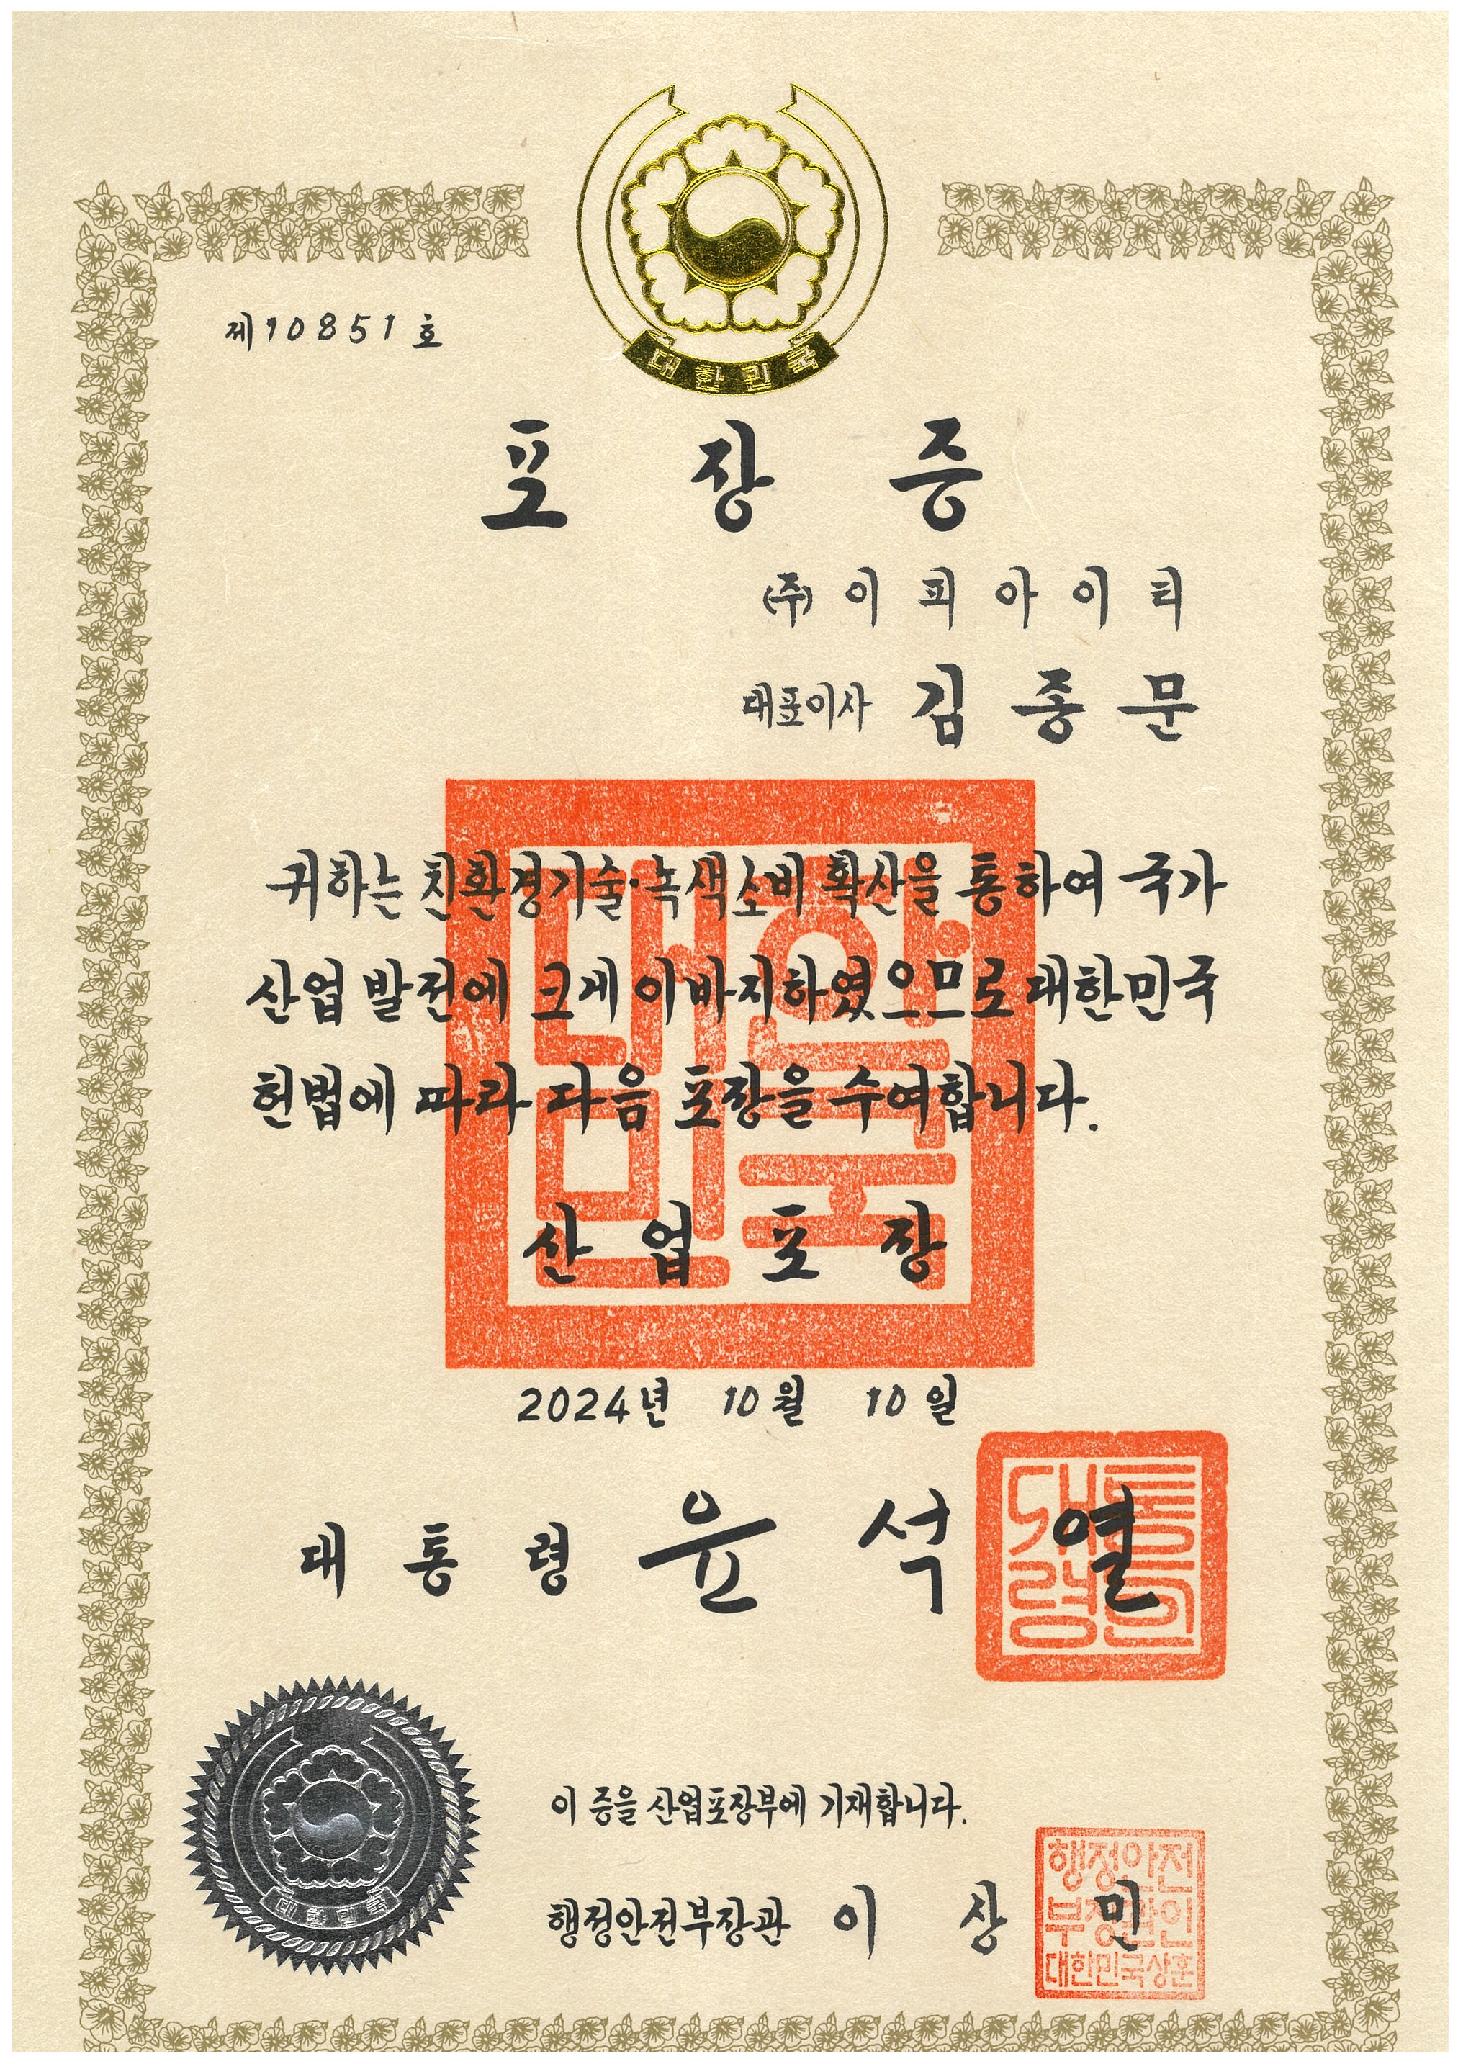 대한민국
제10851호
포장증
(주)이피아이티
대표이사 김종문
귀하는 친환경기술·녹색소비 확산을 통하여 국가
산업 발전에 크게 이바지하였으므로 대한민국
헌법에 따라 다음 포장을 수여합니다.
산업포장
대한
민국
2024년 10월 10일
대통령 윤석열
대통
령인
이 증을 산업포장부에 기재합니다.
대한민국
행정안전부장관 이상민
행정안전
부장관인
대한민국상훈